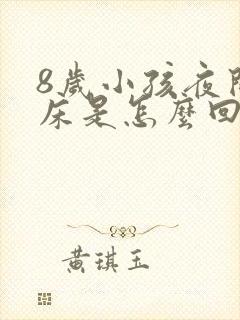 8歲小孩夜間
床是怎麼回
黃琪玉